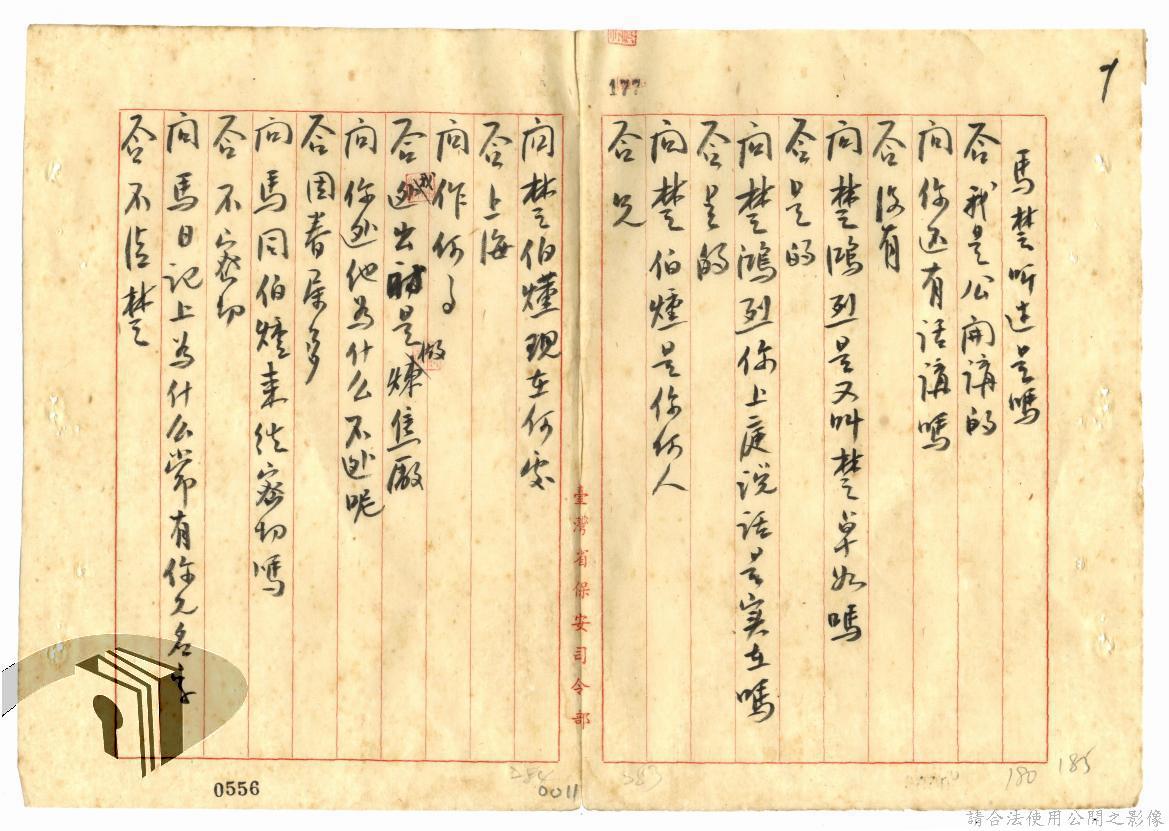 177
馬楚听過是嗎
答我是公開講的
問你还有話講嗎
答沒有
問楚鴻烈是又叫楚卓如嗎
答是的
問楚鴻烈你上庭説話是实在嗎
答是的
問楚伯爐是你何人
答兄
臺灣省保安司令部
問楚伯爐現在何处
答上海
問作何事
答逃出時是做煉焦厰
問你逃他為什么不逃呢
答因眷属多
問馬同伯爐来往密切嗎
答不密切
問馬日記上為什么常有你兄名字
答不清楚
0556
0011
384
383
180
185
請合法使用公開之影像